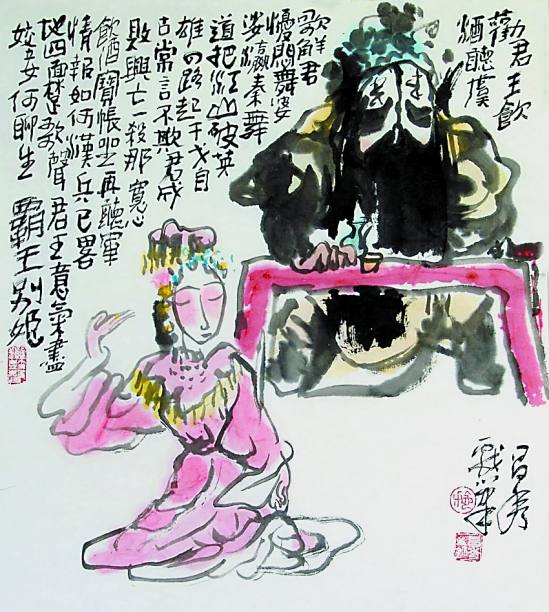 勸君王飲
酒聽虞
歌解君
憂悶舞婆
娑嬴秦無
道把江山破英
雄四路起干戈自
古常言不欺君成
敗興亡一剎那寬心
飲酒寶帳坐再聽軍
情報如何漢兵已畧
地四面楚歌聲君王意氣盡
妾何聊生
霸王别姬
戲筆